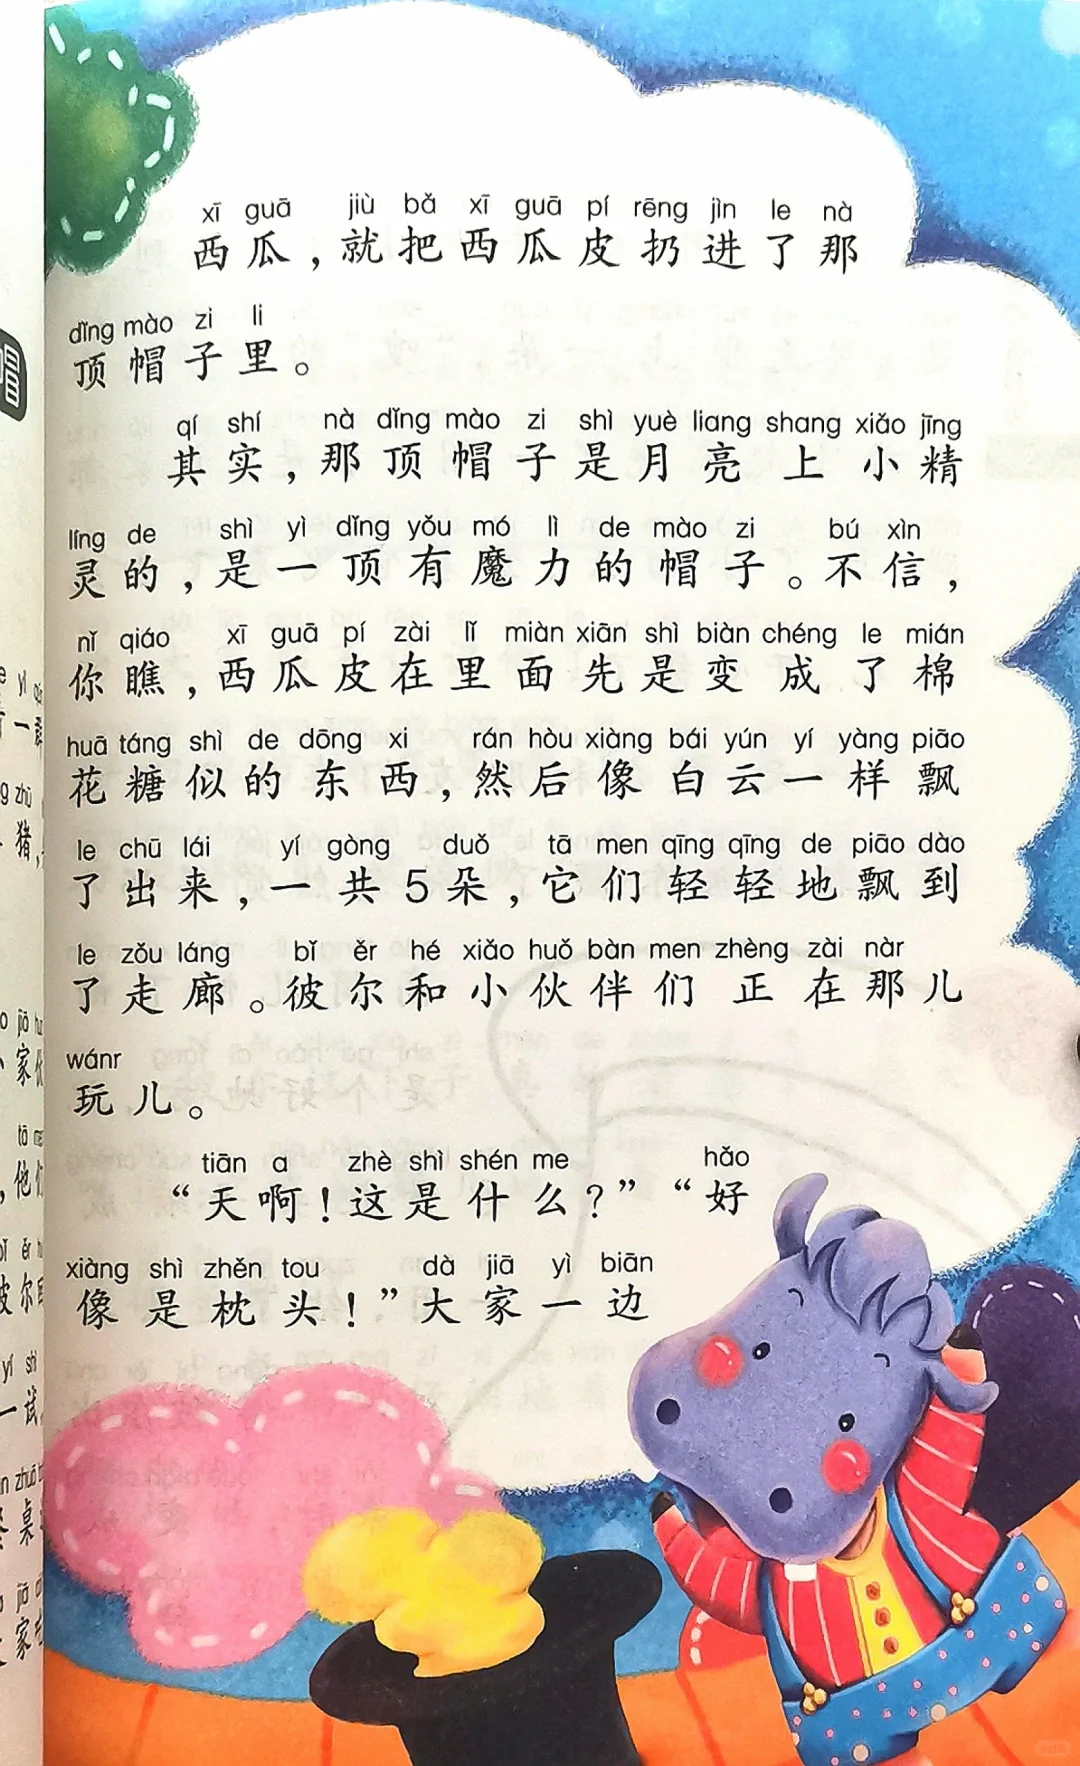 xī guā jiù bǎ xī guā pí rēng jìn le nà
西瓜，就把西瓜皮扔进了那
dǐng mào zi li
顶帽子里。
qí shí nà dǐng mào zi shì yuè liang shang xiǎo jīng
其实，那顶帽子是月亮上小精
líng de shì yì dǐng yǒu mó lì de mào zi bú xìn
灵的，是一顶有魔力的帽子。不信，
nǐ qiáo xī guā pí zài lǐ miàn xiān shì biàn chéng le mián
你瞧，西瓜皮在里面先是变成了棉
huā táng shì de dōng xi rán hòu xiàng bái yún yí yàng piāo
花糖似的东西，然后像白云一样飘
le chū lái yí gòng duǒ tā men qīng qīng de piāo dào
了出来，一共5朵，它们轻轻地飘到
le zǒu láng bǐ ěr hé xiǎo huǒ bàn men zhèng zài nàr
了走廊。彼尔和小伙伴们正在那儿
wánr
玩儿。
tiān a zhè shì shén me hǎo
“天啊！这是什么？”“好
xiàng shì zhěn tou dà jiā yì biān
像是枕头！”大家一边